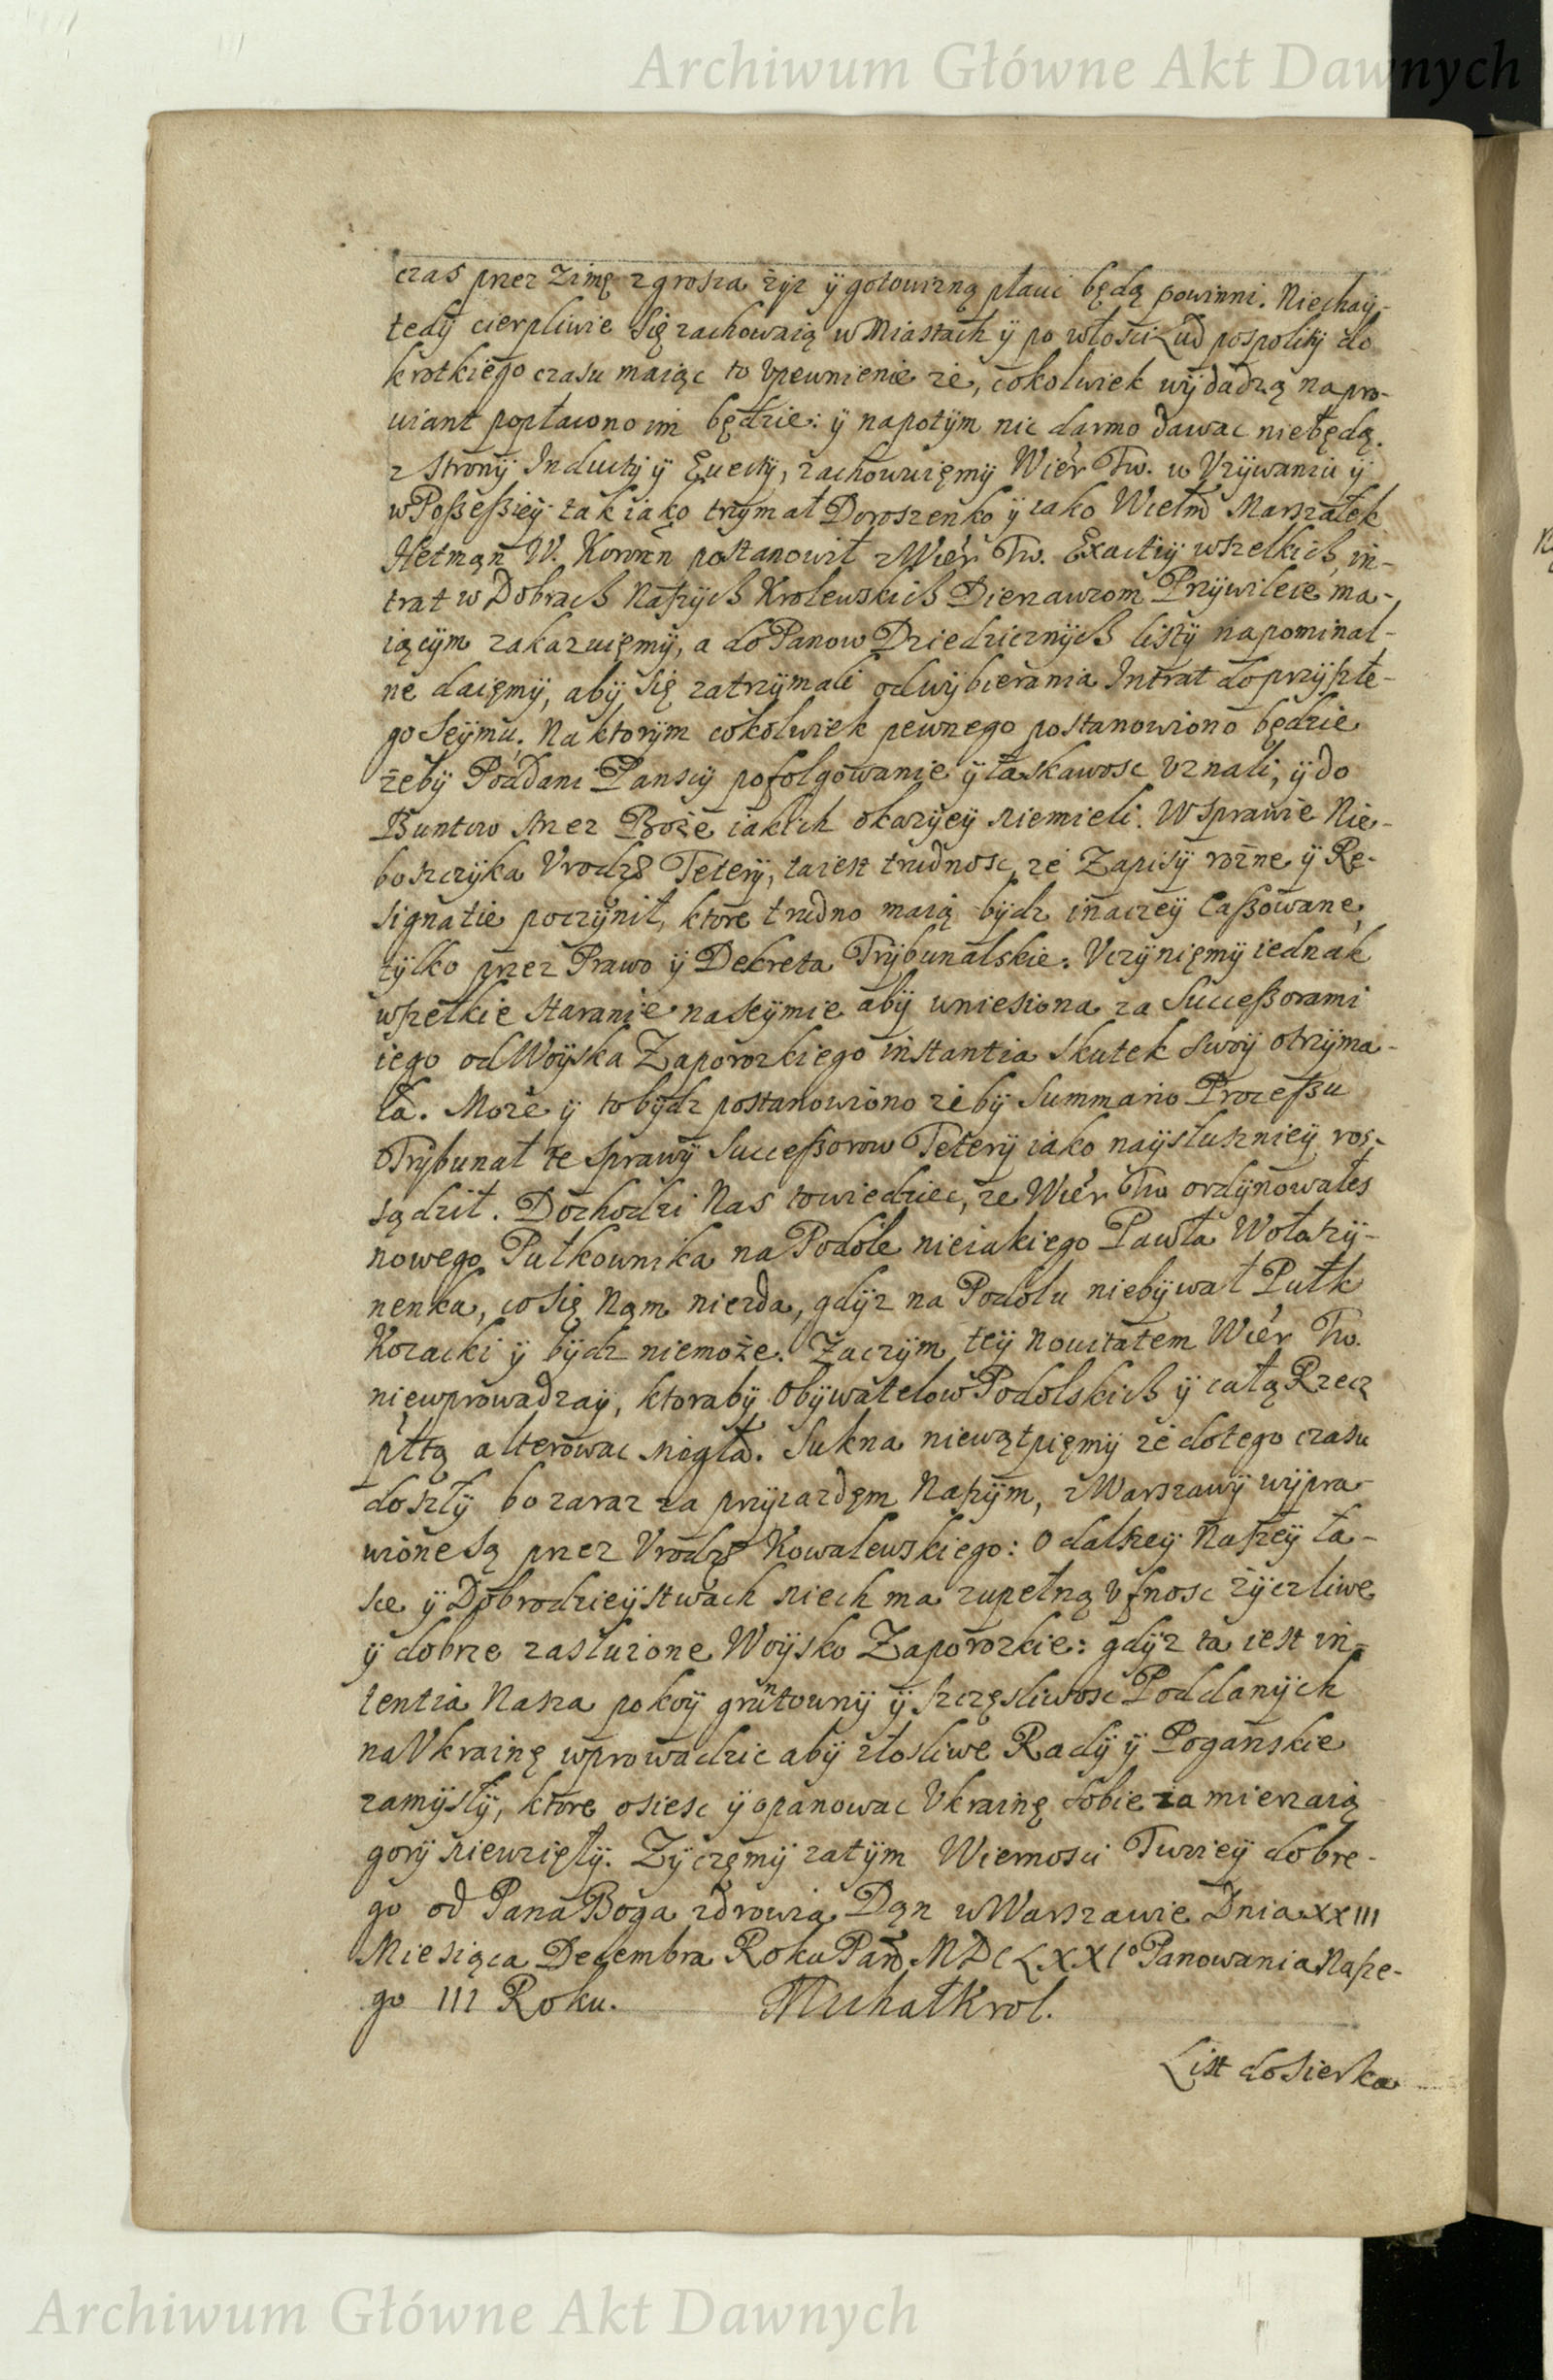 Archiwum Główne Akt Dawnych
czas przez Zimę z grosza żyz ÿ gotowizną płaci będą powinni. Niechaÿ-
tedÿ cierpliwie Się zachowaią w Miastach ÿ po włosci Lud pospolitÿ do
krotkiego czasu maiąc to Vpewnienie że, cokolwiek wÿdadzą na pro-
wiant popłacono im będzie: ÿ napotÿm nic darmo dawac niebędą.
z Stronÿ Inductÿ ÿ Evectÿ, zachowuięmÿ Wier Tw. w Vżÿwaniu ÿ
w Poßeßieÿ tak iako trzÿmał Doroszenko ÿ iako Wielm Marszałek
Hetman W. Koronn postanowił z Wier Tw. Exactiÿ wszelkich, in-
trat w Dobrach Naszÿch Krolewskich Dierzawcom Przÿwileie ma-
iącÿm zakazuięmÿ, a do Panow Dziedzicznÿch listÿ napominal-
ne daięmÿ, abÿ się zatrzÿmali od wÿbierania Intrat do przÿszłe-
go Seÿmu. Na ktorÿm cokolwiek pewnego postanowiono będzie
żebÿ Poddani Panscÿ pofolgowanie ÿ łaskawosc vznali, ÿ do
Buntow strzez Boże iakich okazÿeÿ niemieli. W sprawie Nie-
boszczÿka Vrodzo Teterÿ, ta iest trudnosc, że Zapisÿ rożne ÿ Re-
signatie poczÿnił, ktore trudno maią bÿdz inaczeÿ Caßowane,
tÿlko przez Prawo ÿ Dekreta Trÿbunalskie. Vczÿnięmÿ iednak
wszelkie staranie na seÿmie abÿ wniesiona za Succeßorami
iego od Woÿska Zaporozkiego instantia skutek swoÿ otrzÿma-
ła. Może ÿ to bÿdz postanowiono że bÿ Summario Proceßu
Trÿbunał te sprawÿ Succeßorow Teterÿ iako naÿsłuszniéÿ roz-
sądził. Dochodzi Nas to wiedziec, że Wier Tw ordÿnowałes
nowego Pułkownika na Podole nieiakiego Pawła Wołoszÿ-
nenka, co się Nąm niezda, gdÿż na Podolu niebÿwał Pułk
Kozacki ÿ bÿdz niemoże. Zaczÿm teÿ Nouitatem Wier Tw.
niewprowadzaÿ, ktorabÿ Obÿwatelow Podolskich ÿ całą Rzecz
pltą alterowac mogła. Sukna niewątpięmÿ że do tego czasu
doszłÿ bo zaraz za przÿiazdęm Naszÿm, z Warszawÿ wÿpra-
wione są przez Vrodzo Kowalewskiego: O dalszeÿ Naszeÿ ła-
sce ÿ Dobrodzieÿstwach niech ma zupełną Vfnosc żÿczliwe
ÿ dobrze zasłużone Woÿsko Zaporozkie: gdÿż ta iest in-
tentia Nasza pokoÿ gruntownÿ ÿ szczęsliwosc Poddanÿch
na Vkrainę wprowadzic abÿ złosliwe Radÿ ÿ Poganskie
zamÿsłÿ, ktore osiesc ÿ opanowac Vkrainę sobie zamierzaią
gorÿ niewzięłÿ. Zÿczęmÿ zatÿm Wiernosci Twoieÿ dobre-
go od Pana Boga zdrowia Dąn w Warszawie Dnia XXIII
Miesiąca Decembra Roku Pań. MDCLXXIo Panowania Nasze-
go III Roku. Michał Krol.
List do Sierka
Archiwum Główne Akt Dawnych